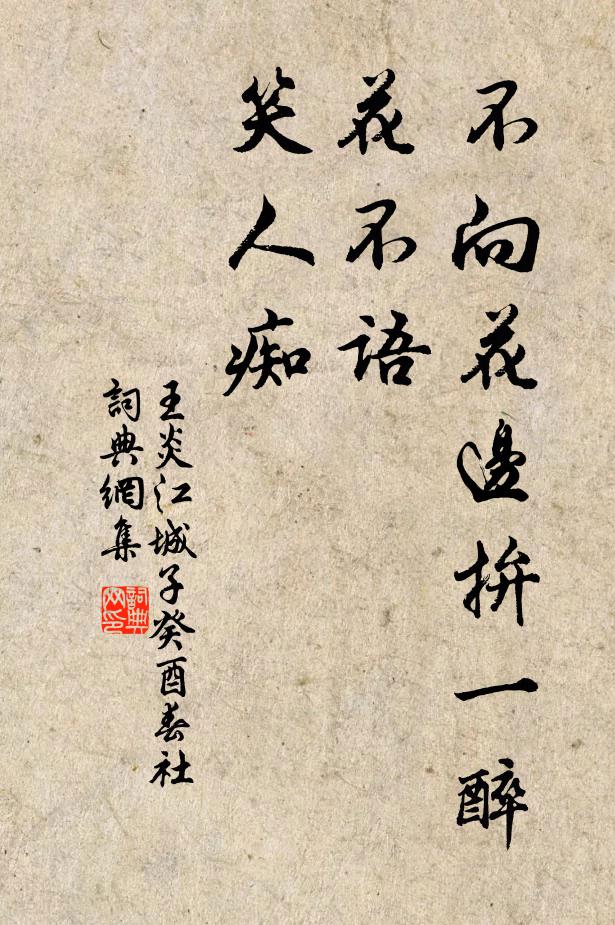 不向花邊拚一醉
花不語
笑人痴
王炎江城子癸酉春社
詞典網集
詞典網印